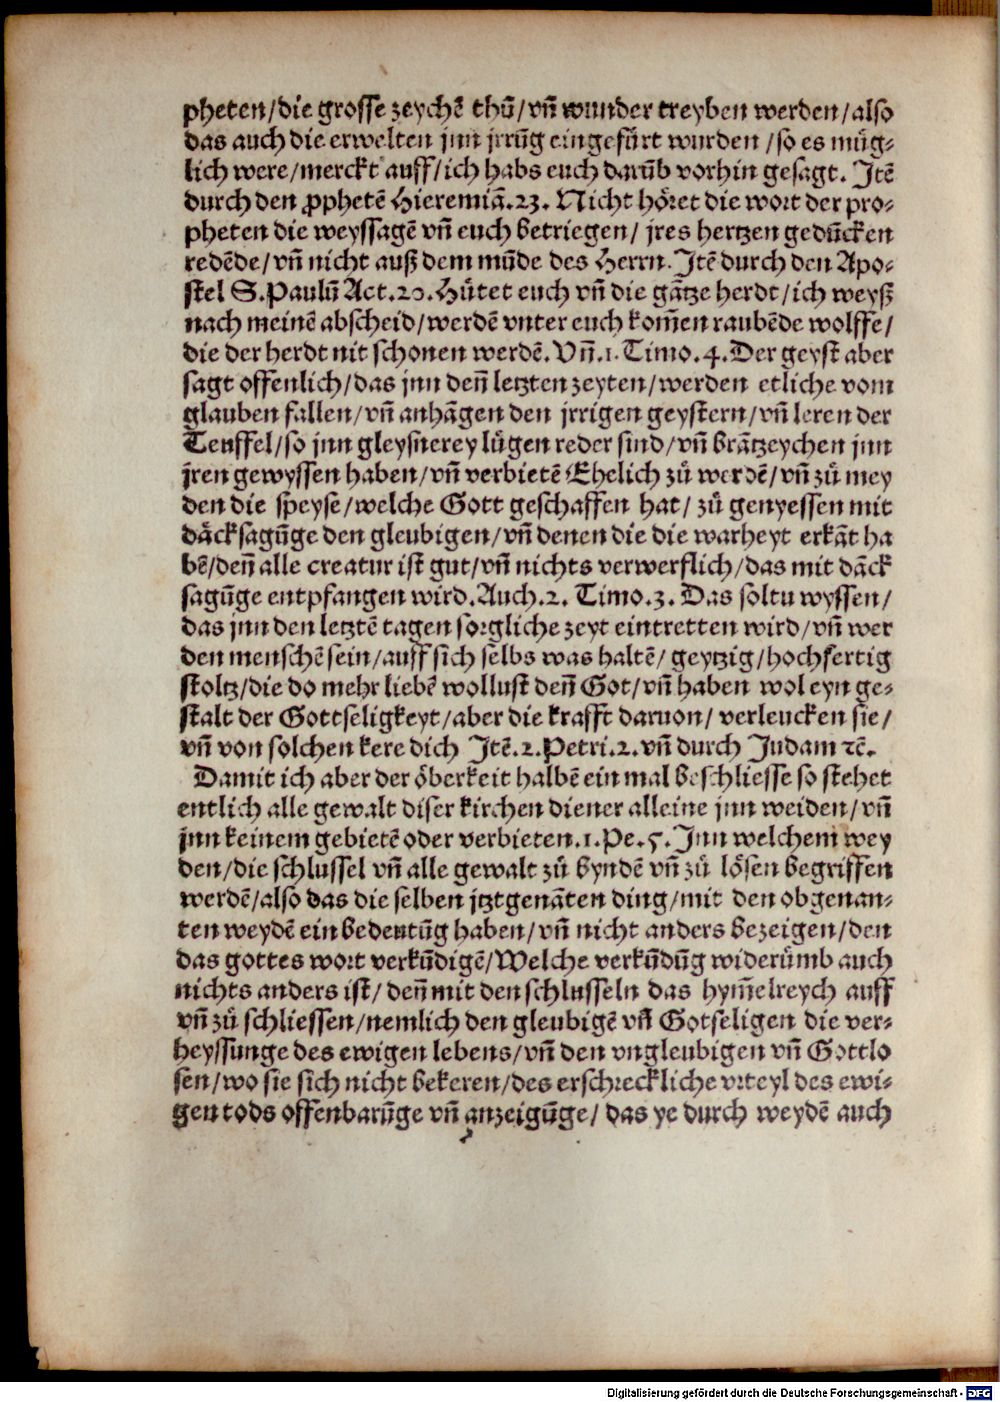 pheten/die grosse zeychē thū/vn̄ wunder treyben werden/also
das auch die erwelten jnn jrrūg eingefürt wurden/so es müg⸗
lich were/merckt auff/ich habs euch darūb vorhin gesagt. Itē
durch den ꝓphetē Hieremiā.23. Nicht höret die wort der pro⸗
pheten die weyssagē vn̄ euch betriegen/ jres hertzen gedūcken
redēde/vn̄ nicht auß dem mūde des Herrn. Itē durch den Apo⸗
stel S.Paulū Act.20.Hütet euch vn̄ die gātze herdt/ich weyß
nach meinē abscheid/werdē vnter euch kom̄en raubēde wolffe/
die der herdt nit schonen werdē.Vn̄.1.Timo.4.Der geyst aber
sagt offenlich/das jnn den̄ letzten zeyten/werden etliche vom
glauben fallen/vn̄ anhāgen den jrrigen geystern/vn̄ leren der
Teuffel/so jnn gleysnerey lügen reder sind/vn̄ brātzeychen jnn
jren gewyssen haben/vn̄ verbietē Ehelich zů werdē/vn̄ zů mey
den die speyse/welche Gott geschaffen hat/ zů genyessen mit
däcksagūge den gleubigen/vn̄ denen die die warheyt erkāt ha
bē/den̄ alle creatur ist gut/vn̄ nichts verwerflich/das mit dāck
sagūge entpfangen wird.Auch.2. Timo.3. Das soltu wyssen/
das jnn den letztē tagen sorgliche zeyt eintretten wird/vn̄ wer
den menschē sein/auff sich selbs was haltē/ geytzig/hochfertig
stoltz/die do mehr liebē wollust den̄ Got/vn̄ haben wol eyn ge⸗
stalt der Gottseligkeyt/aber die krafft daruon/ verleucken sie/
vn̄ von solchen kere dich Itē.2.Petri.2.vn̄ durch Judam ꝛcē.
Damit ich aber der öberkeit halbē ein mal beschliesse so stehet
entlich alle gewalt diser kirchen diener alleine jnn weiden/vn̄
jnn keinem gebietē oder verbieten.1.Pe.5.Jnn welchem wey
den/die schlussel vn̄ alle gewalt zů byndē vn̄ zů lösen begriffen
werdē/also das die selben jtztgenāten ding/mit den obgenan⸗
ten weydē ein bedeutūg haben/vn̄ nicht anders bezeigen/den
das gottes wort verkūdigē/Welche verkūdūg widerümb auch
nichts anders ist/ den̄ mit den schlusseln das hym̄elreych auff
vn̄ zů schliessen/nemlich den gleubigē vn̄ Gotseligen die ver⸗
heyssunge des ewigen lebens/vn̄ den vngleubigen vn̄ Gottlo
sen/wo sie sich nicht bekeren/des erschreckliche vrteyl des ewi⸗
gen tods offenbarūge vn̄ anzeigūge/ das ye durch weydē auch
Digitalisierung gefördert durch die Deutsche Forschungsgemeinschaft - DFG